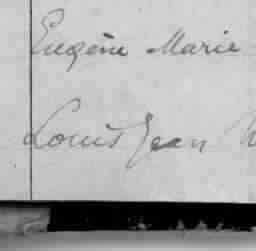 Eugène Marie
Louis Jean